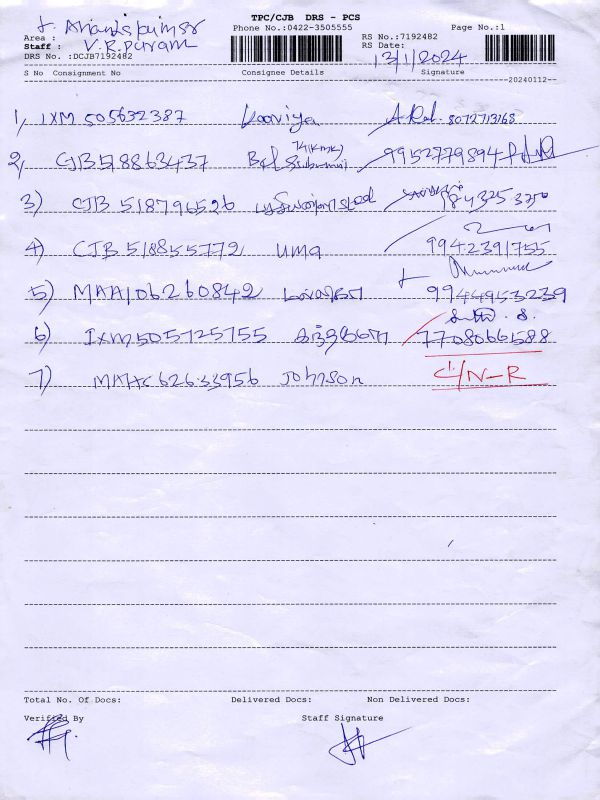 TPC/CJB DRS - PCS
Phone No.:0422-3505555
Page No.:1
Area :
Staff : V.R.Puram
DRS No. :DCJB7192482
RS No.:7192482
RS Date: 13/1/2024
S No Consignment No Consignee Details Signature
20240112
1, IXM 505632387 Kaaviya 8072713163
2, CJB 518863437 9952779894
3) CJB 518796526
4) CJB 518855772 uma 9942391755
5) MAA106260842 9944953239
6) IXM505725755 7708066588
7) 62633956 Johnson C/N-R
Total No. Of Docs: Delivered Docs: Non Delivered Docs:
Verified By Staff Signature